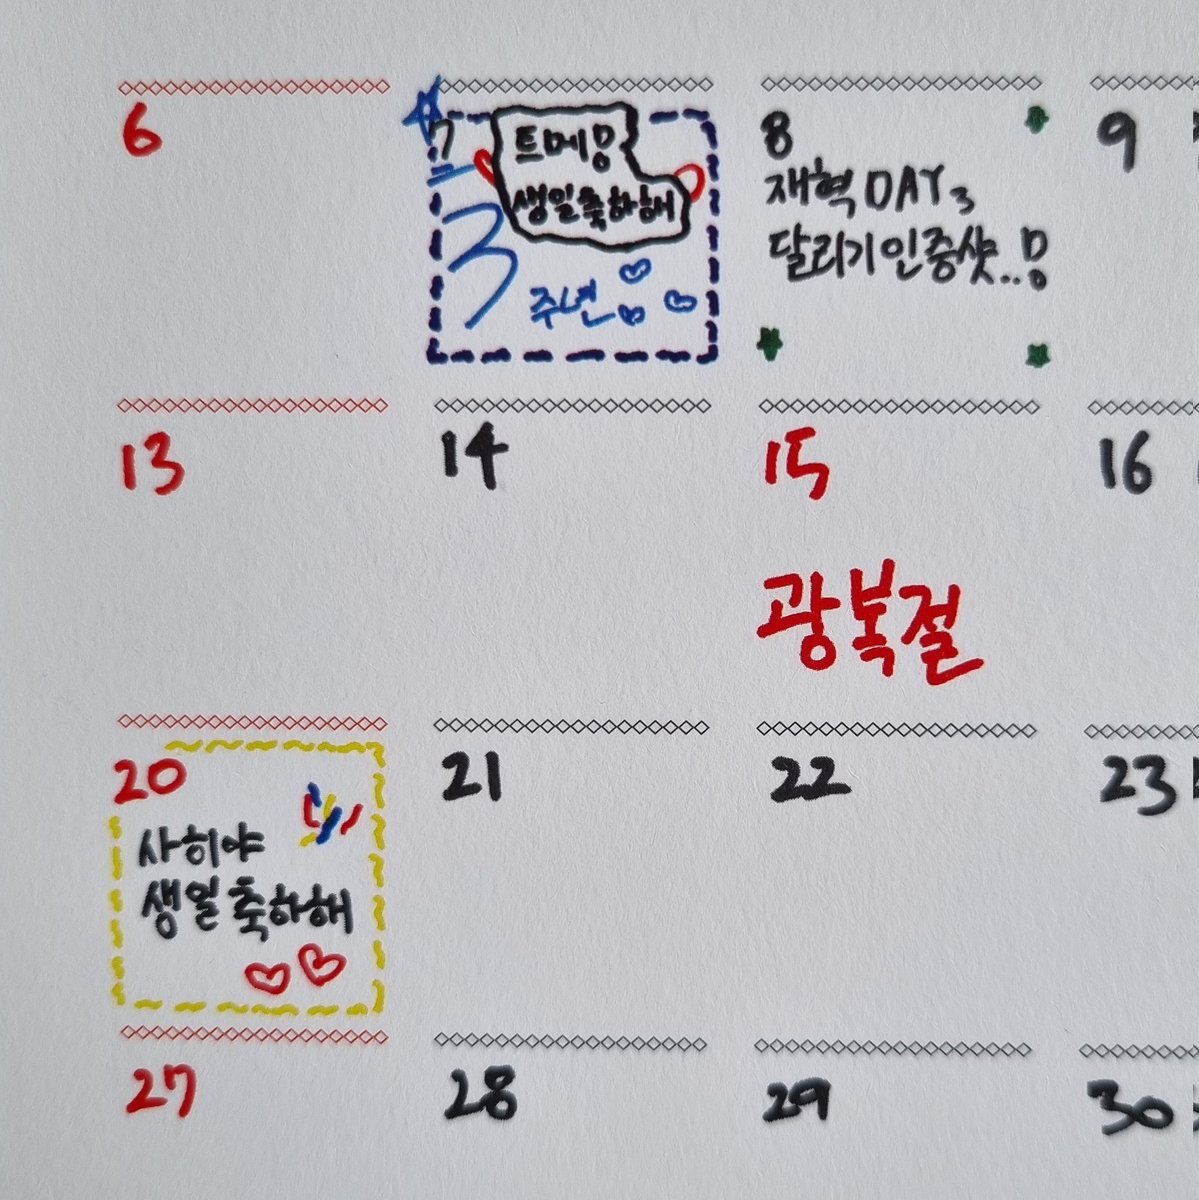 6
7
트메양
생일축하해
3주년
8
재혁 DAY
달리기인증샷..
9
13
14
15
광복절
16
20
사히야
생일 축하해
21
22
23
27
28
29
30